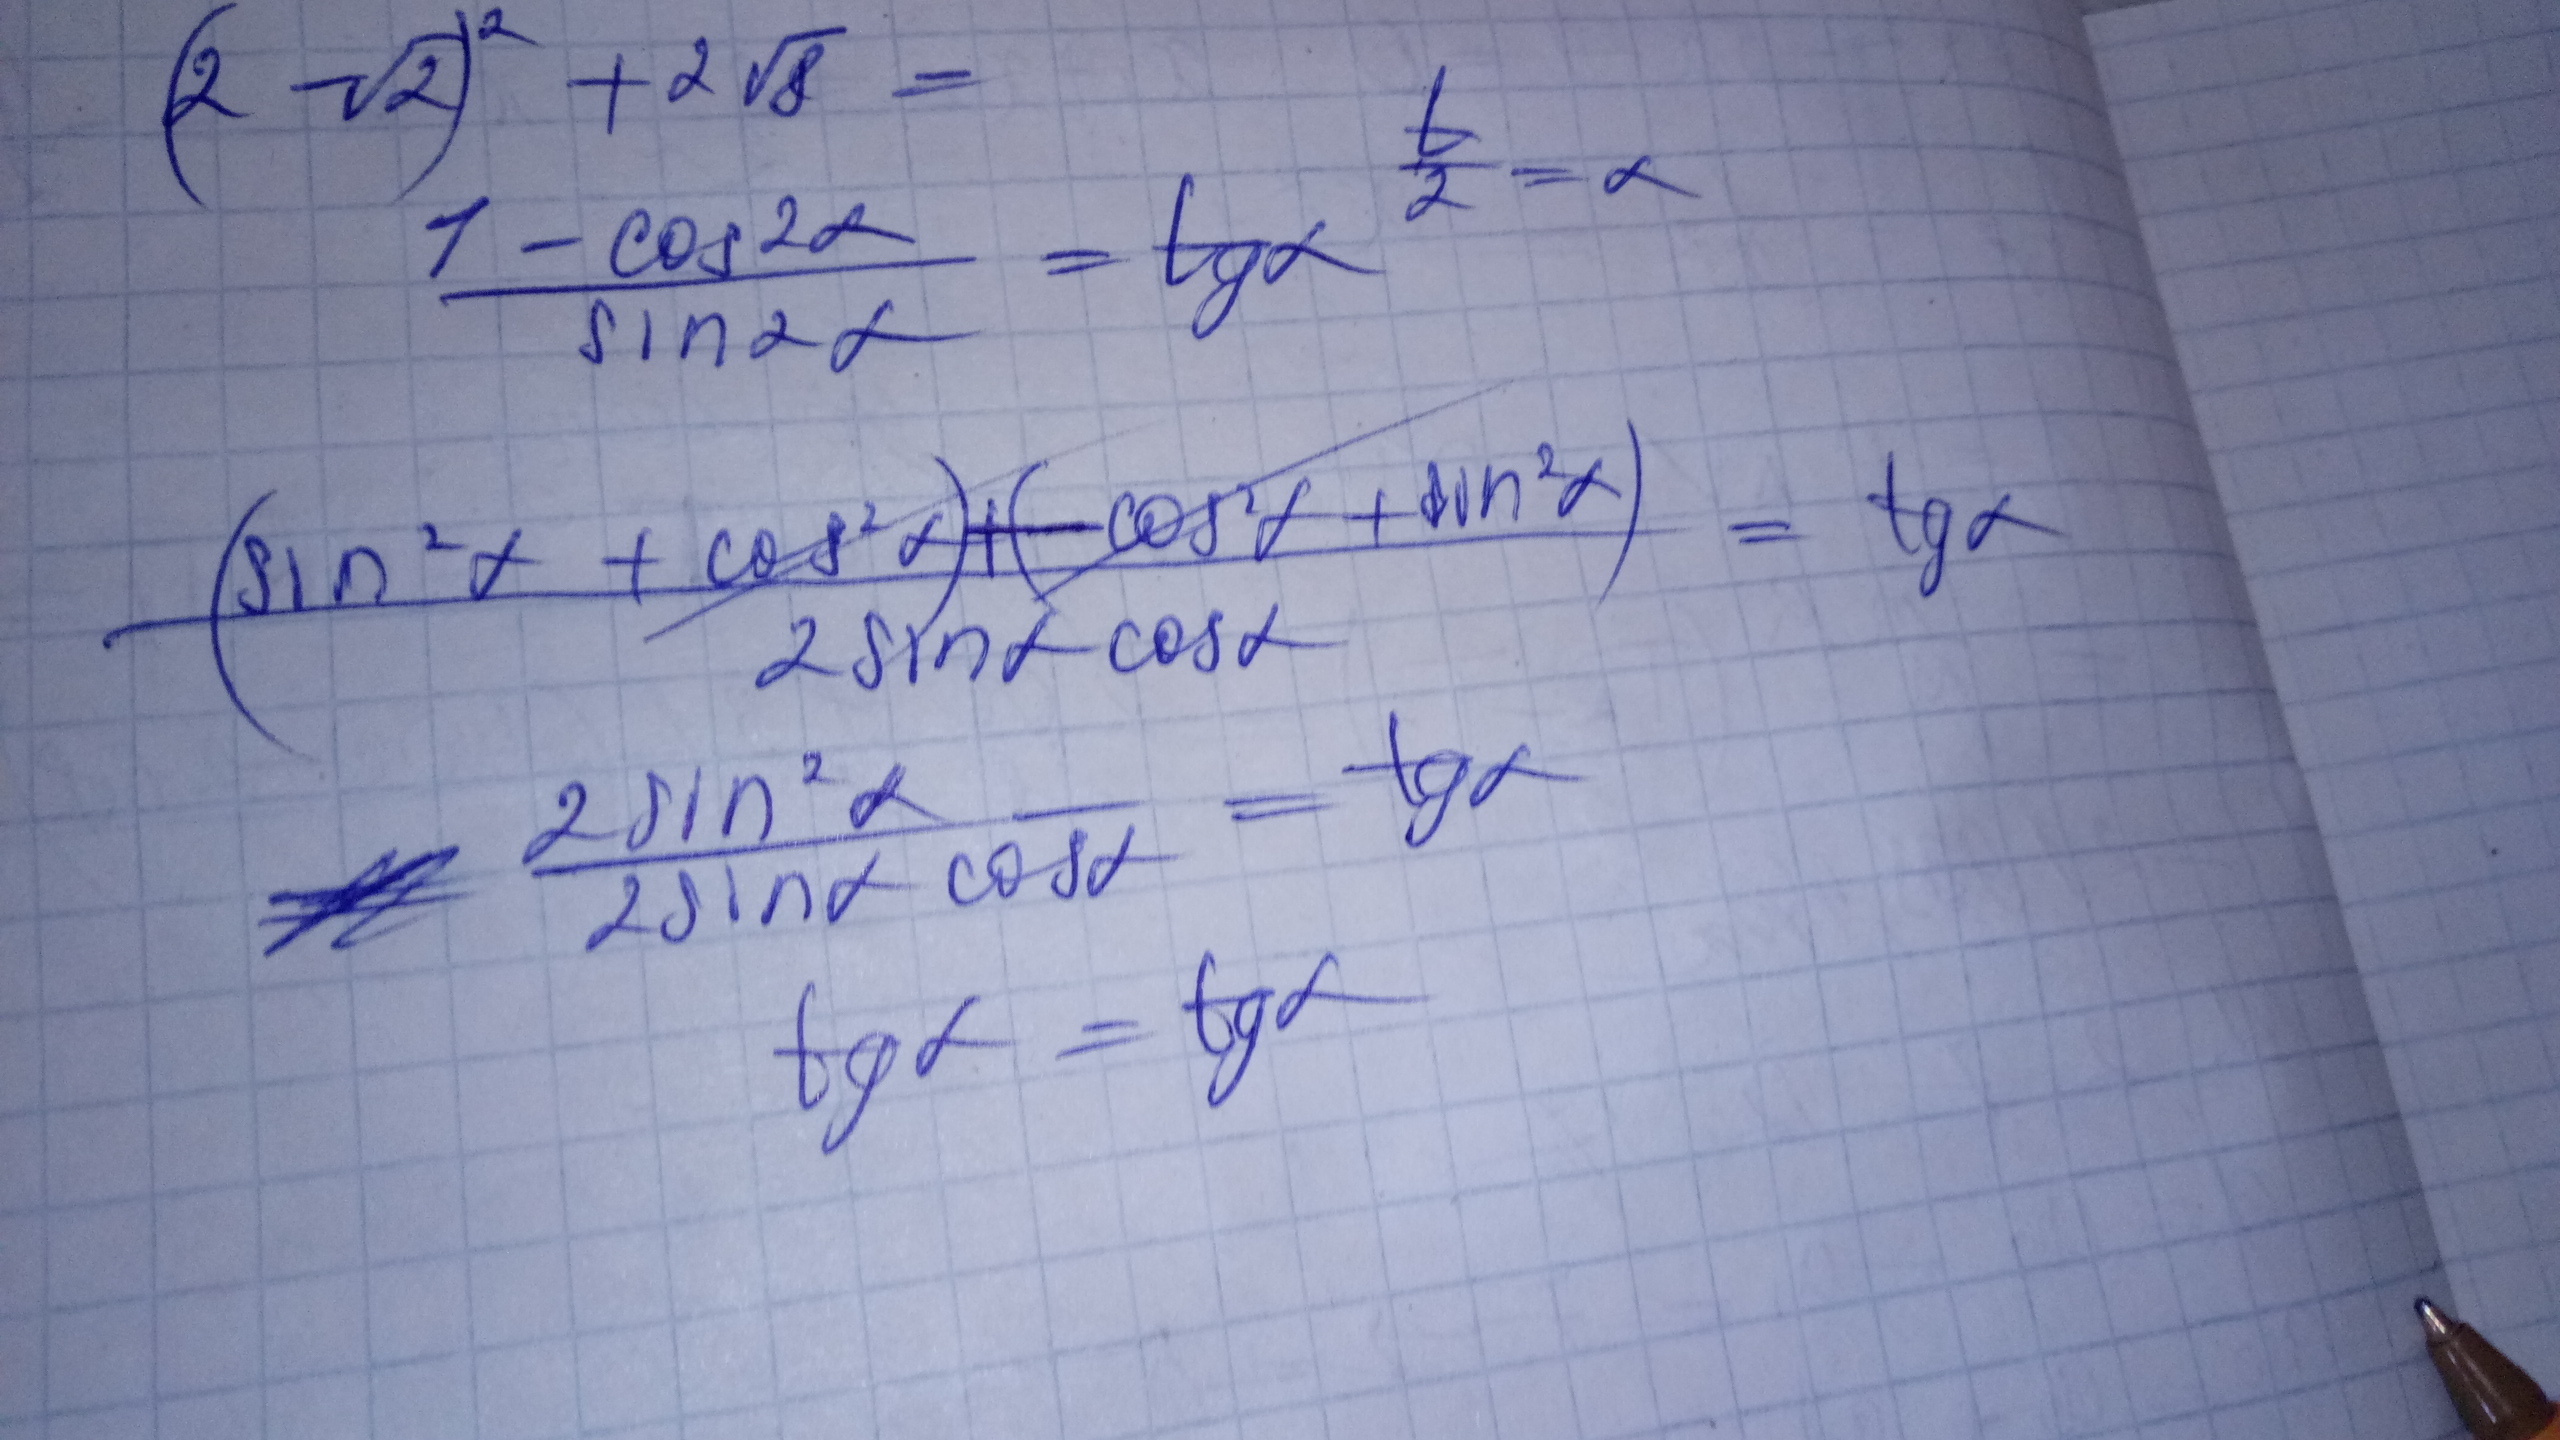 (2 - √2)² + 2√8 =
t/2 = α
1 - cos2α / sin2α = tgα
(sin²α + cos²α) + (-cos²α + sin²α) / 2sinα cosα = tgα
2sin²α / 2sinα cosα = tgα
tgα = tgα